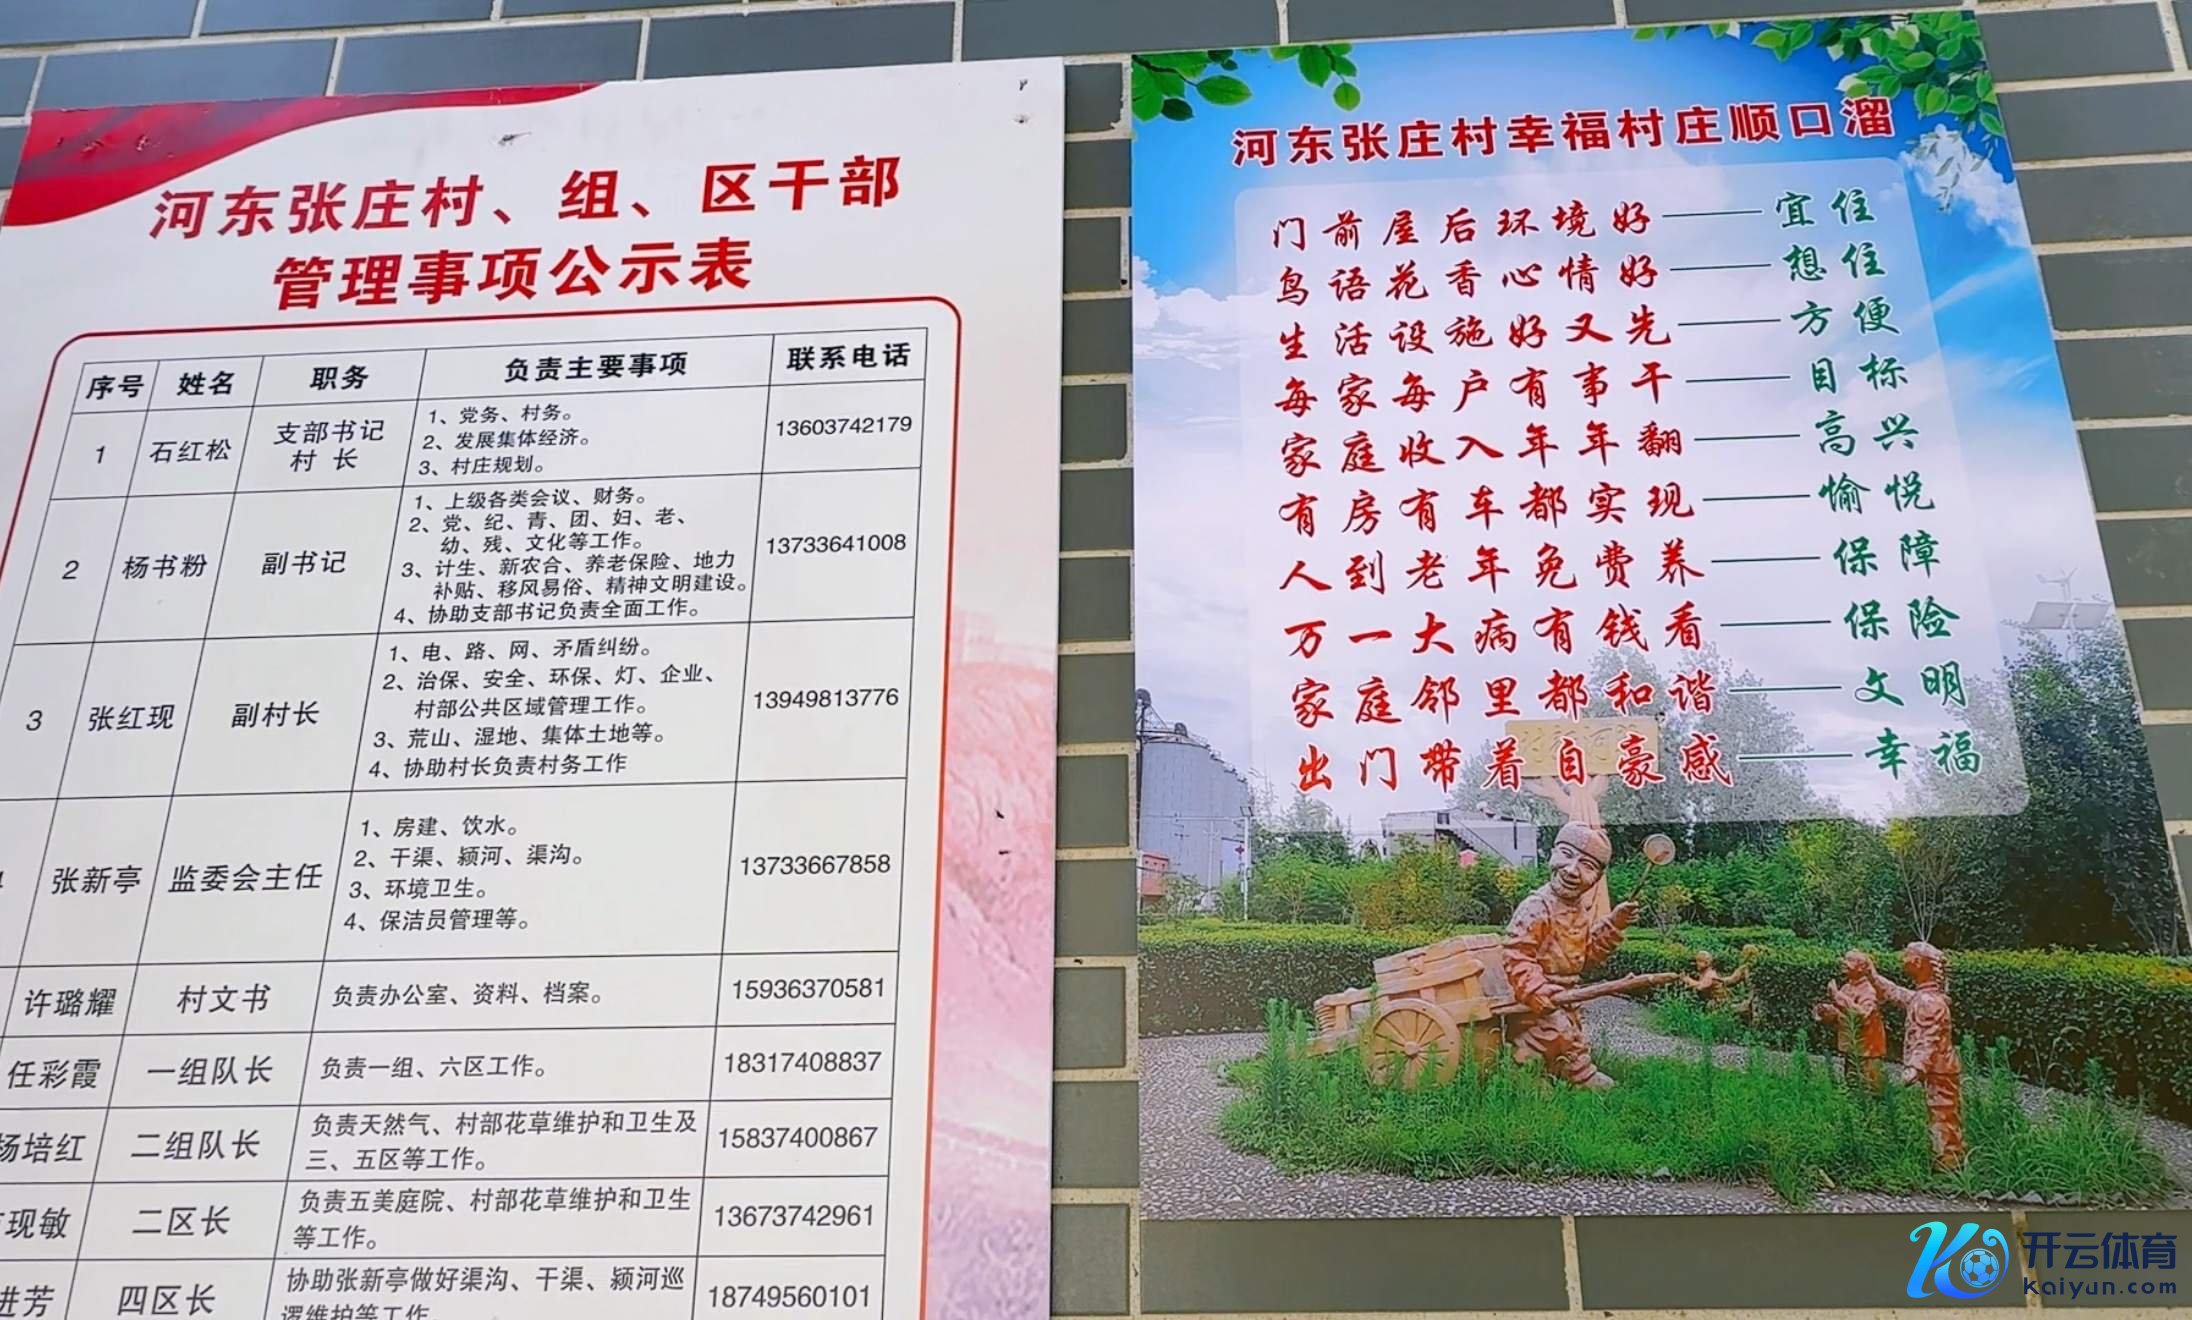 河东张庄村、组、区干部
管理事项公示表
序号 姓名 职务 负责主要事项 联系电话
1 石红松 支部书记 村长 13603742179
1、党务、村务。
2、发展集体经济。
3、村庄规划。
2 杨书粉 副书记 13733641008
1、上级各类会议、财务。
2、党、纪、青、团、妇、老、
幼、残、文化等工作。
3、计生、新农合、养老保险、地力
补贴、移风易俗、精神文明建设。
4、协助支部书记负责全面工作。
3 张红现 副村长 13949813776
1、电、路、网、矛盾纠纷。
2、治保、安全、环保、灯、企业、
村部公共区域管理工作。
3、荒山、湿地、集体土地等。
4、协助村长负责村务工作
张新亭 监委会主任 13733667858
1、房建、饮水。
2、干渠、颍河、渠沟。
3、环境卫生。
4、保洁员管理等。
许璐耀 村文书 负责办公室、资料、档案。 15936370581
任彩霞 一组队长 负责一组、六区工作。 18317408837
杨培红 二组队长 15837400867
负责天然气、村部花草维护和卫生及
三、五区等工作。
现敏 二区长 13673742961
负责五美庭院、村部花草维护和卫生
等工作。
进芳 四区长 18749560101
协助张新亭做好渠沟、干渠、颍河巡
逻维护等工作。
河东张庄村幸福村庄顺口溜
门前屋后环境好——宜住
鸟语花香心情好——想住
生活设施好又先——方便
每家每户有事干——目标
家庭收入年年翻——高兴
有房有车都实现——愉悦
人到老年免费养——保障
万一大病有钱看——保险
家庭邻里都和谐——文明
出门带着自豪感——幸福
开云体育
kaiyun.com